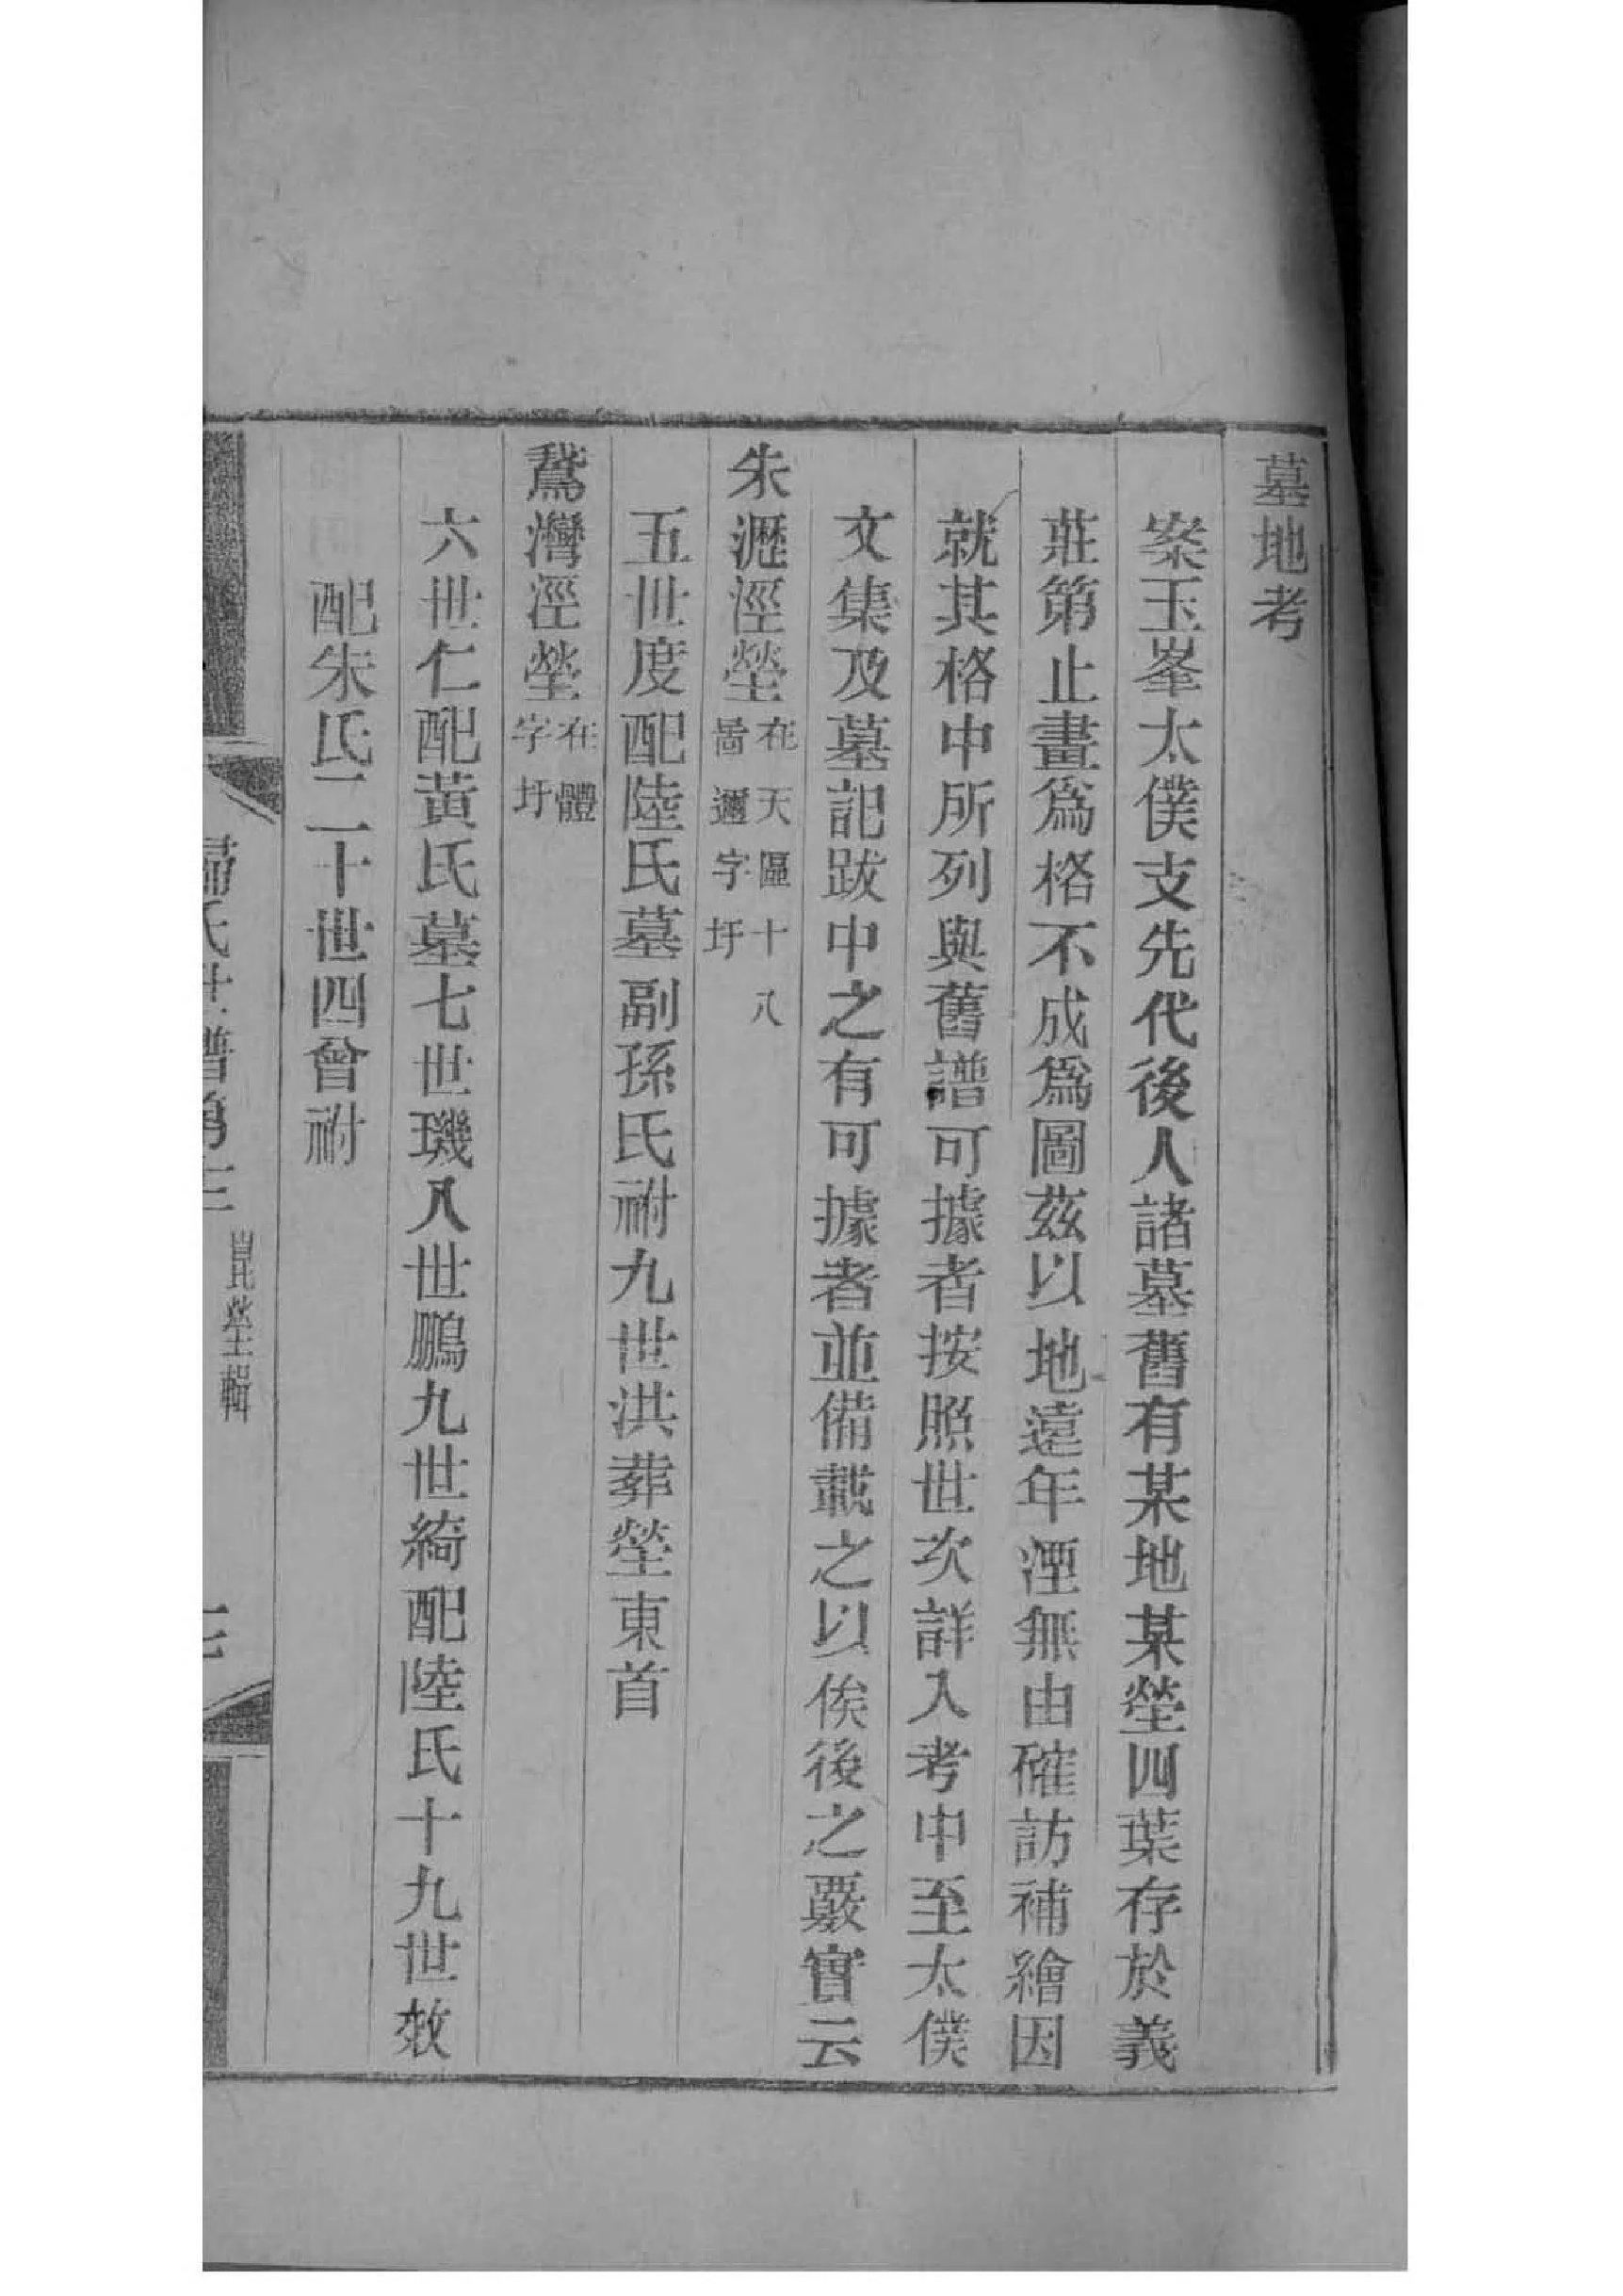 墓地考
案玉峯太僕支先代後人諸墓舊有某地某塋四葉存於義
莊第止畫爲格不成爲圖茲以地遠年湮無由確訪補繪因
就其格中所列與舊譜可據者按照世次詳入考中至太僕
文集及墓記跋中之有可據者並備載之以俟後之覈實云
朱瀝涇塋在天區十八
啚邇字圩
五世度配陸氏墓副孫氏祔九世洪葬塋東首
鵞灣涇塋在體
字圩
六世仁配黃氏墓七世璣八世鵬九世綺配陸氏十九世效
配朱氏二十世四曾祔
歸氏世譜
塋輯